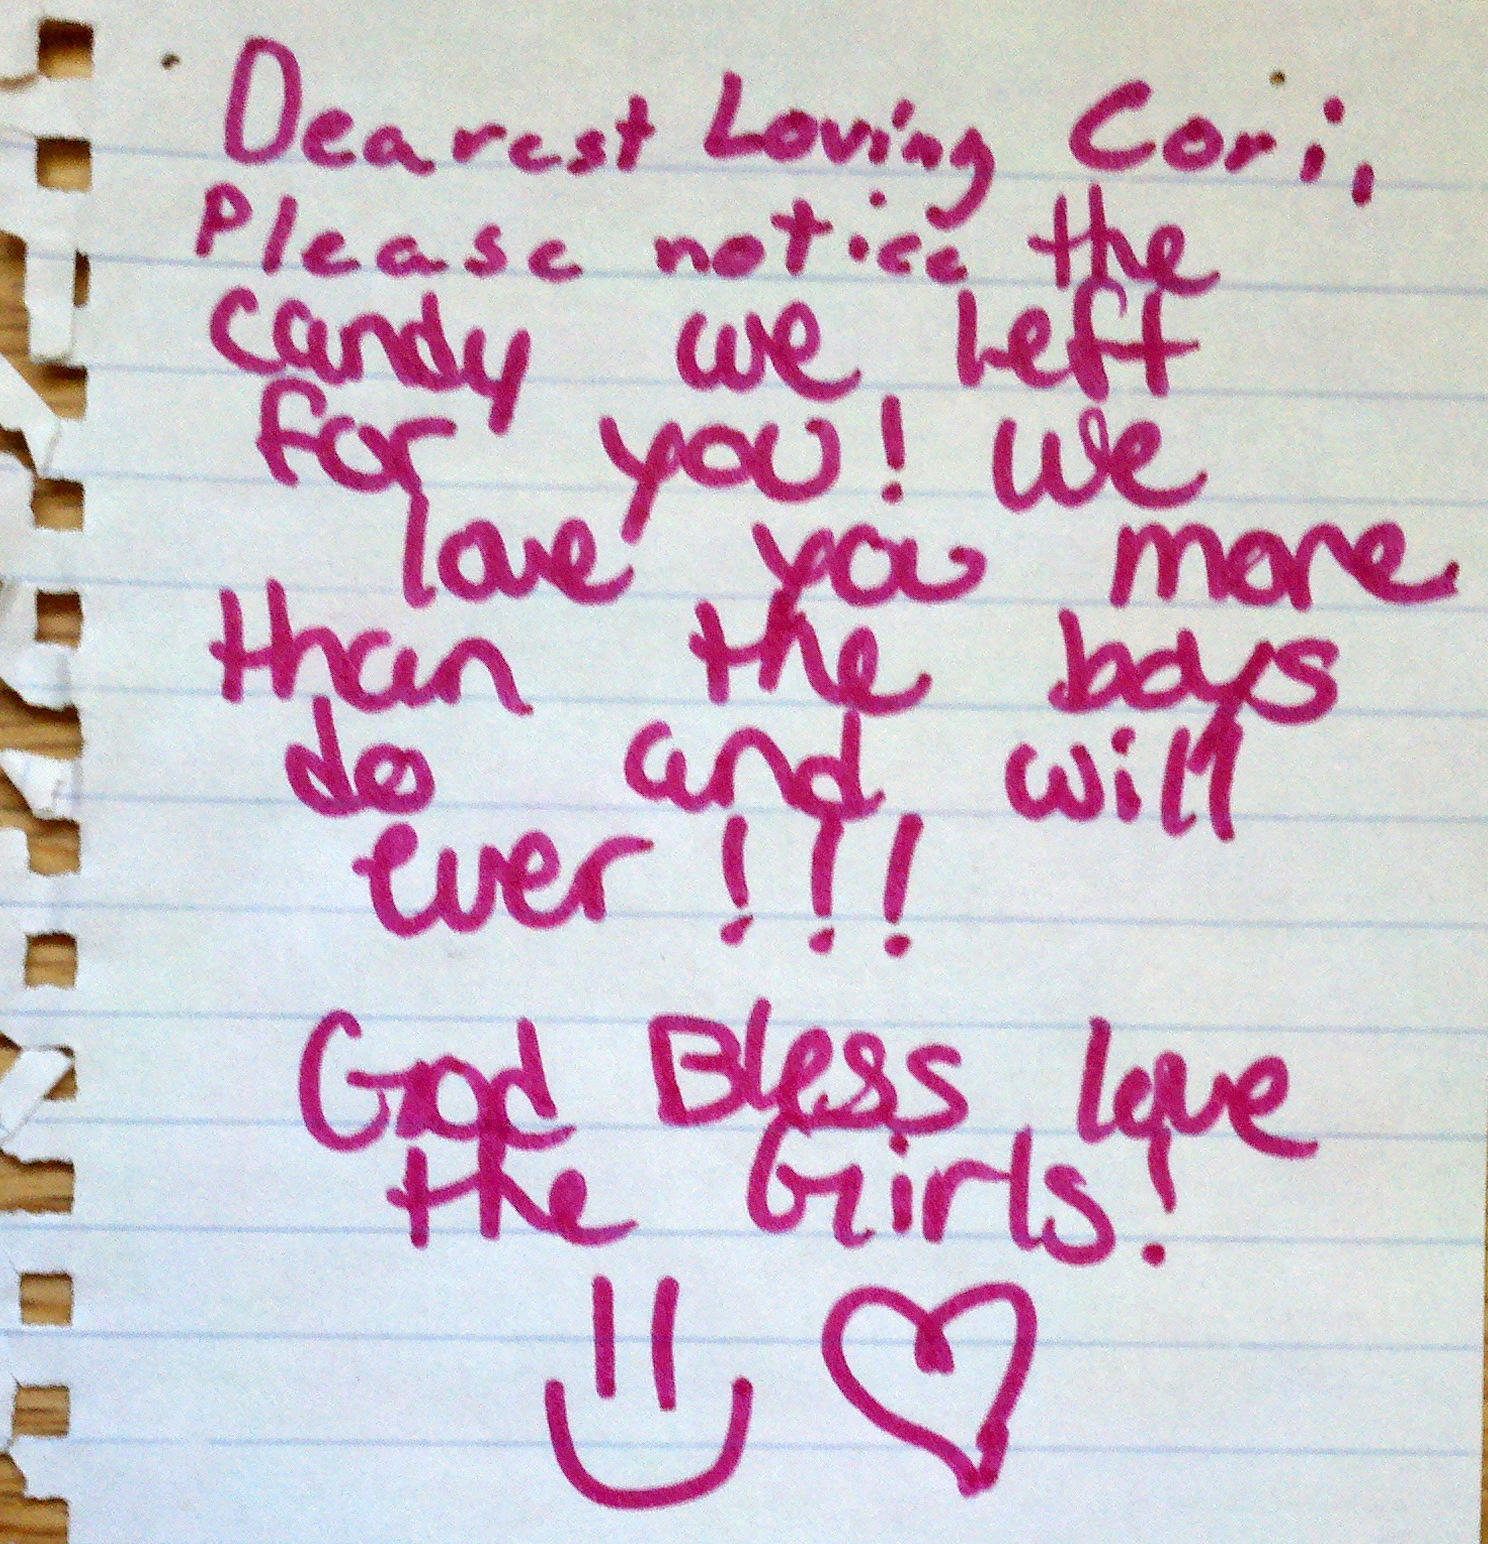 Dearest Loving Cori,
Please notice the
candy we left
for you! We
love you more
than the boys
do and will
ever!!!
God Bless, love
the Girls!